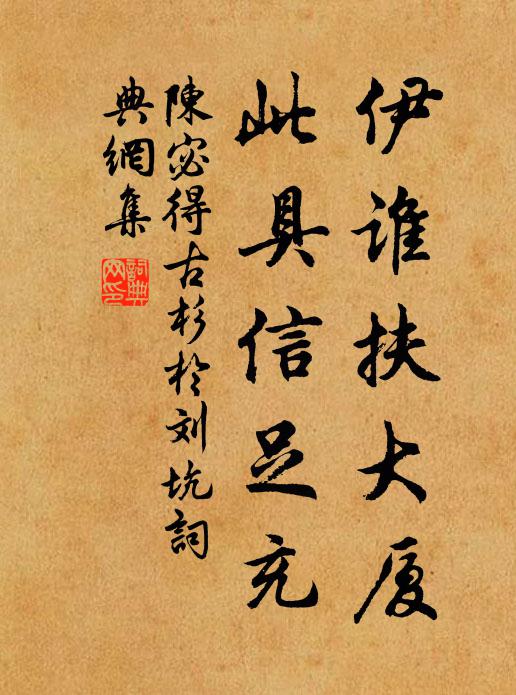 伊谁扶大厦
此具信足充
陳宓得古杉於刘坑詞
典網集
詞典网印